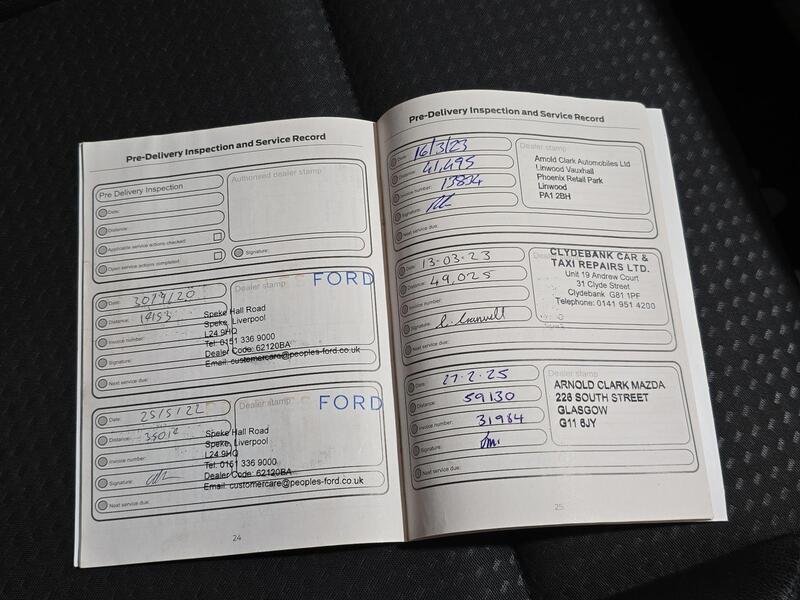 Pre-Delivery Inspection and Service Record
Pre Delivery Inspection
Date:
Distance:
Applicable service actions checked:
Open service actions completed:
Authorised dealer stamp
Signature:
Date: 30/9/20
Distance: 14153
Invoice number:
Signature:
Next service due:
Dealer stamp
FORD
Speke Hall Road
Speke, Liverpool
L24 9HQ
Tel: 0151 336 9000
Dealer Code: 62120BA
Email: customercare@peoples-ford.co.uk
Date: 25/5/22
Distance:
Invoice number:
Signature:
Next service due:
Dealer stamp
FORD
Speke Hall Road
Speke, Liverpool
L24 9HQ
Tel: 0151 336 9000
Dealer Code: 62120BA
Email: customercare@peoples-ford.co.uk
24
Pre-Delivery Inspection and Service Record
Date: 16/3/23
Distance: 41,495
Invoice number:
Signature:
Next service due:
Dealer stamp
Arnold Clark Automobiles Ltd
Linwood Vauxhall
Phoenix Retail Park
Linwood
PA1 2BH
Date: 13-03-23
Distance: 49,025
Invoice number:
Signature:
Next service due:
CLYDEBANK CAR &
TAXI REPAIRS LTD.
Unit 19 Andrew Court
31 Clyde Street
Clydebank G81 1PF
Telephone: 0141 951 4200
Date: 27.2.25
Distance: 59130
Invoice number: 31984
Signature:
Next service due:
Dealer stamp
ARNOLD CLARK MAZDA
226 SOUTH STREET
GLASGOW
G11 6JY
25